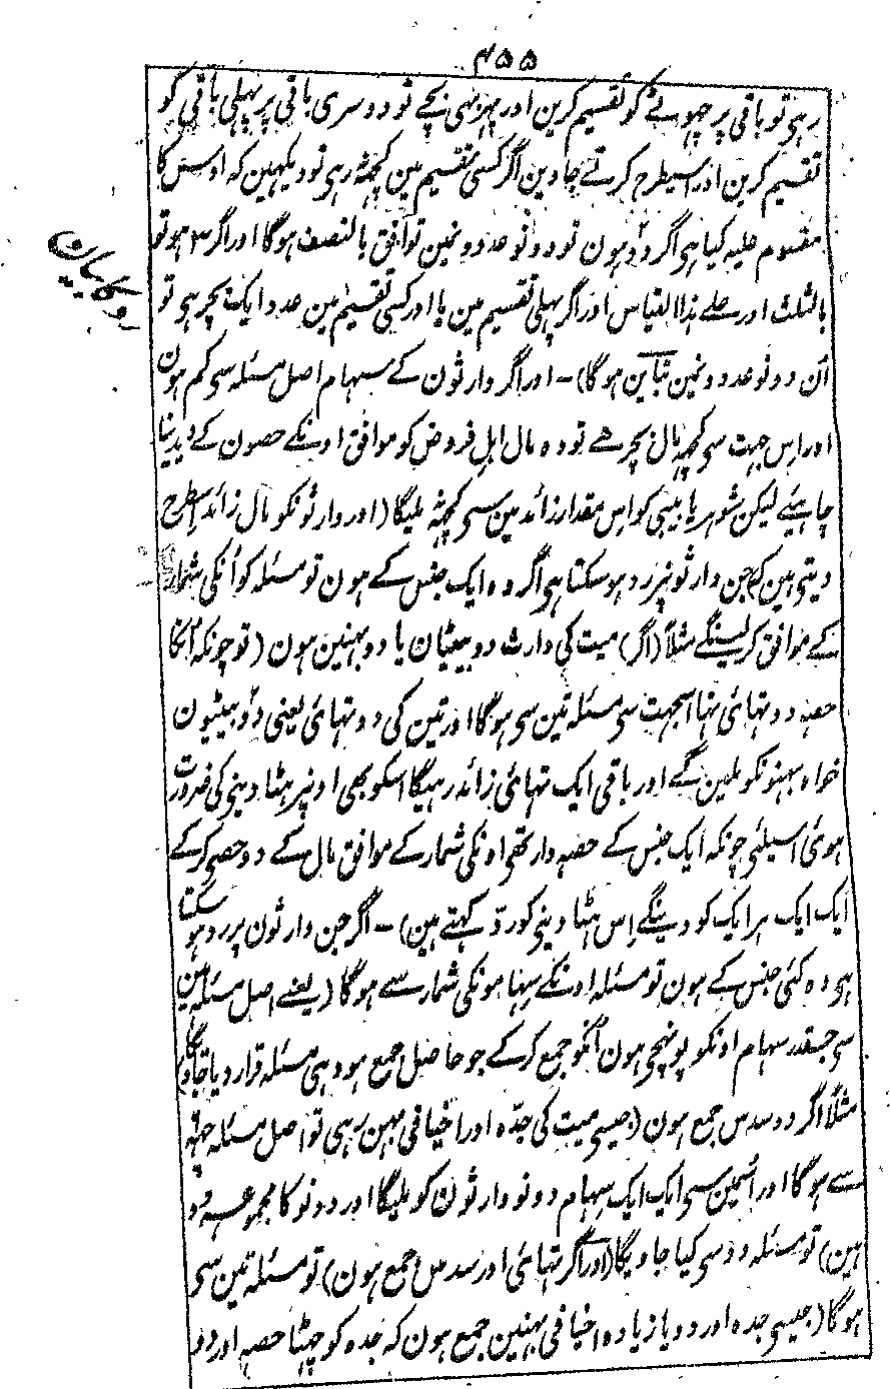 ۴۵۵
رہی تو باقی پر چھوٹے کو تقسیم کرین اور پہر بہی بچے تو دوسری باقی پر پہلی باقی کو
تقسیم کرین اور اسیطرح کرتے جاوین اگر کسی تقسیم مین کچہہ نہ رہی تو دیکہین کہ اوس کا
مقسوم علیہ کیا ہی اگر دو ہون تو دونو عددونمین توافق بالنصف ہوگا اور اگر ۳ ہو تو
بالثلث اور علے ہذا القیاس اور اگر پہلی تقسیم مین یا اور کسی تقسیم مین عدد ایک بچ رہی تو
ان دونو عددونمین تباین ہوگا) - اور اگر وارثون کے سہام اصل مسئلہ سی کم ہون
اور اس جہت سی کچہہ مال بچ رہے تو وہ مال اہل فروض کو موافق اونکے حصون کے دیدینا
چاہئیے لیکن شوہر یا بیبی کو اس مقدار زائد مین سی کچہہ نہ ملیگا (اور وارثونکو مال زائد اسطرح
دیتی ہین کہ) جن وارثونپر رد ہو سکتا ہی اگر وہ ایک جنس کے ہون تو مسئلہ کو اُنکی شمار
کے موافق کر لینگے مثلاً (اگر) میت کی وارث دو بیٹیان یا دو بہنین ہون (تو چونکہ انکا
حصہ دو تہائی تہا اسجہت سی مسئلہ تین سی ہوگا اور تین کی دو تہائی یعنی دو دو بیٹیون
خواہ بہنونکو ملین گے اور باقی ایک تہائی زائد رہیگا اسکو بھی اونپر ہٹا دینی کی ضرورت
ہوئی اسیلئی چونکہ ایک جنس کے حصہ دار تھی اونکی شمار کے موافق مال کے دو حصی کر کے
ایک ایک ہر ایک کو دینگے اِس ہٹا دینی کو ردّ کہتے ہین) - اگر جن وارثون پر رد ہو سکتا
ہی وہ کئی جنس کے ہون تو مسئلہ اونکے سہامونکی شمار سے ہوگا (یعنے اصل مسئلہ مین
سی جسقدر سہام اونکو پونہچی ہون اُنکو جمع کر کے جو حاصل جمع ہو وہی مسئلہ قرار دیا جاویگا)
مثلاً اگر دو سدس جمع ہون (جیسی میت کی جدّہ اور اخیافی بہن رہی تو اصل مسئلہ چہہ
سے ہوگا اور اُسمین سی ایک ایک سہام دونو وارثون کو ملیگا اور دونو کا مجموعہ دو
ہین) تو مسئلہ دو سی کیا جاویگا (اور اگر تہائی اور سدس جمع ہون) تو مسئلہ تین سی
ہوگا (جیسی جدہ اور دو یا زیادہ اخیافی بہنین جمع ہون کہ جدہ کو چہٹا حصہ اور دو
رد کا بیان